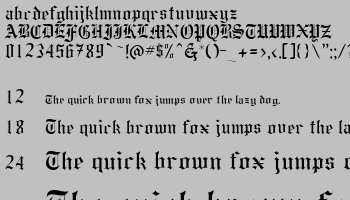 abcdefghijklmnopqrstuvwxyz
ABCDEFGHIJKLMNOPQRSTUVWXYZ
0123456789`~!@#$%^&*()-_+=>,<.[]{}\|";:/?
12 The quick brown fox jumps over the lazy dog.
18 The quick brown fox jumps over the la
24 The quick brown fox jumps o
The quick brown fo